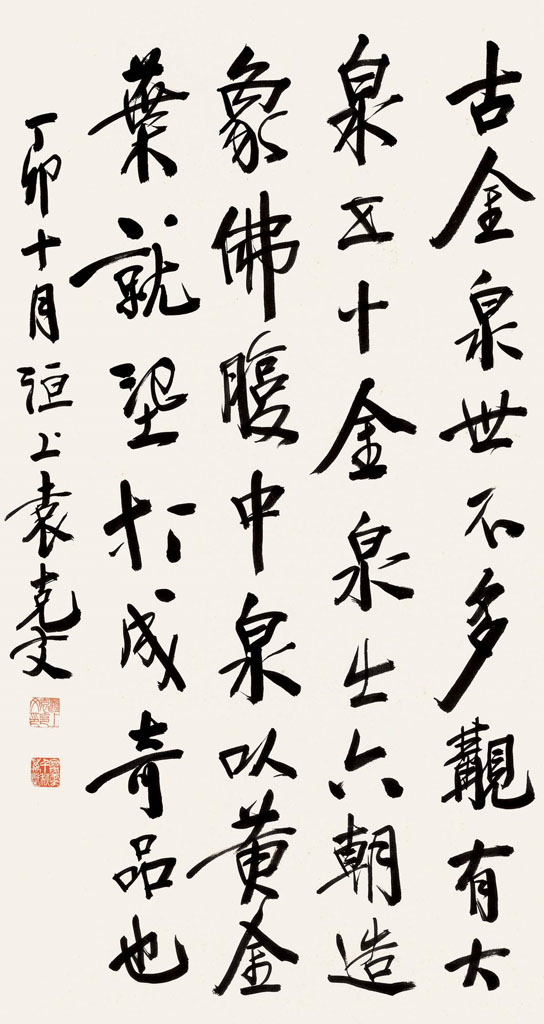 古金泉世不多覯有大
泉五十金泉出六朝造
象佛腹中泉以黄金
葉就打成奇品也
丁卯十月洹上袁克文